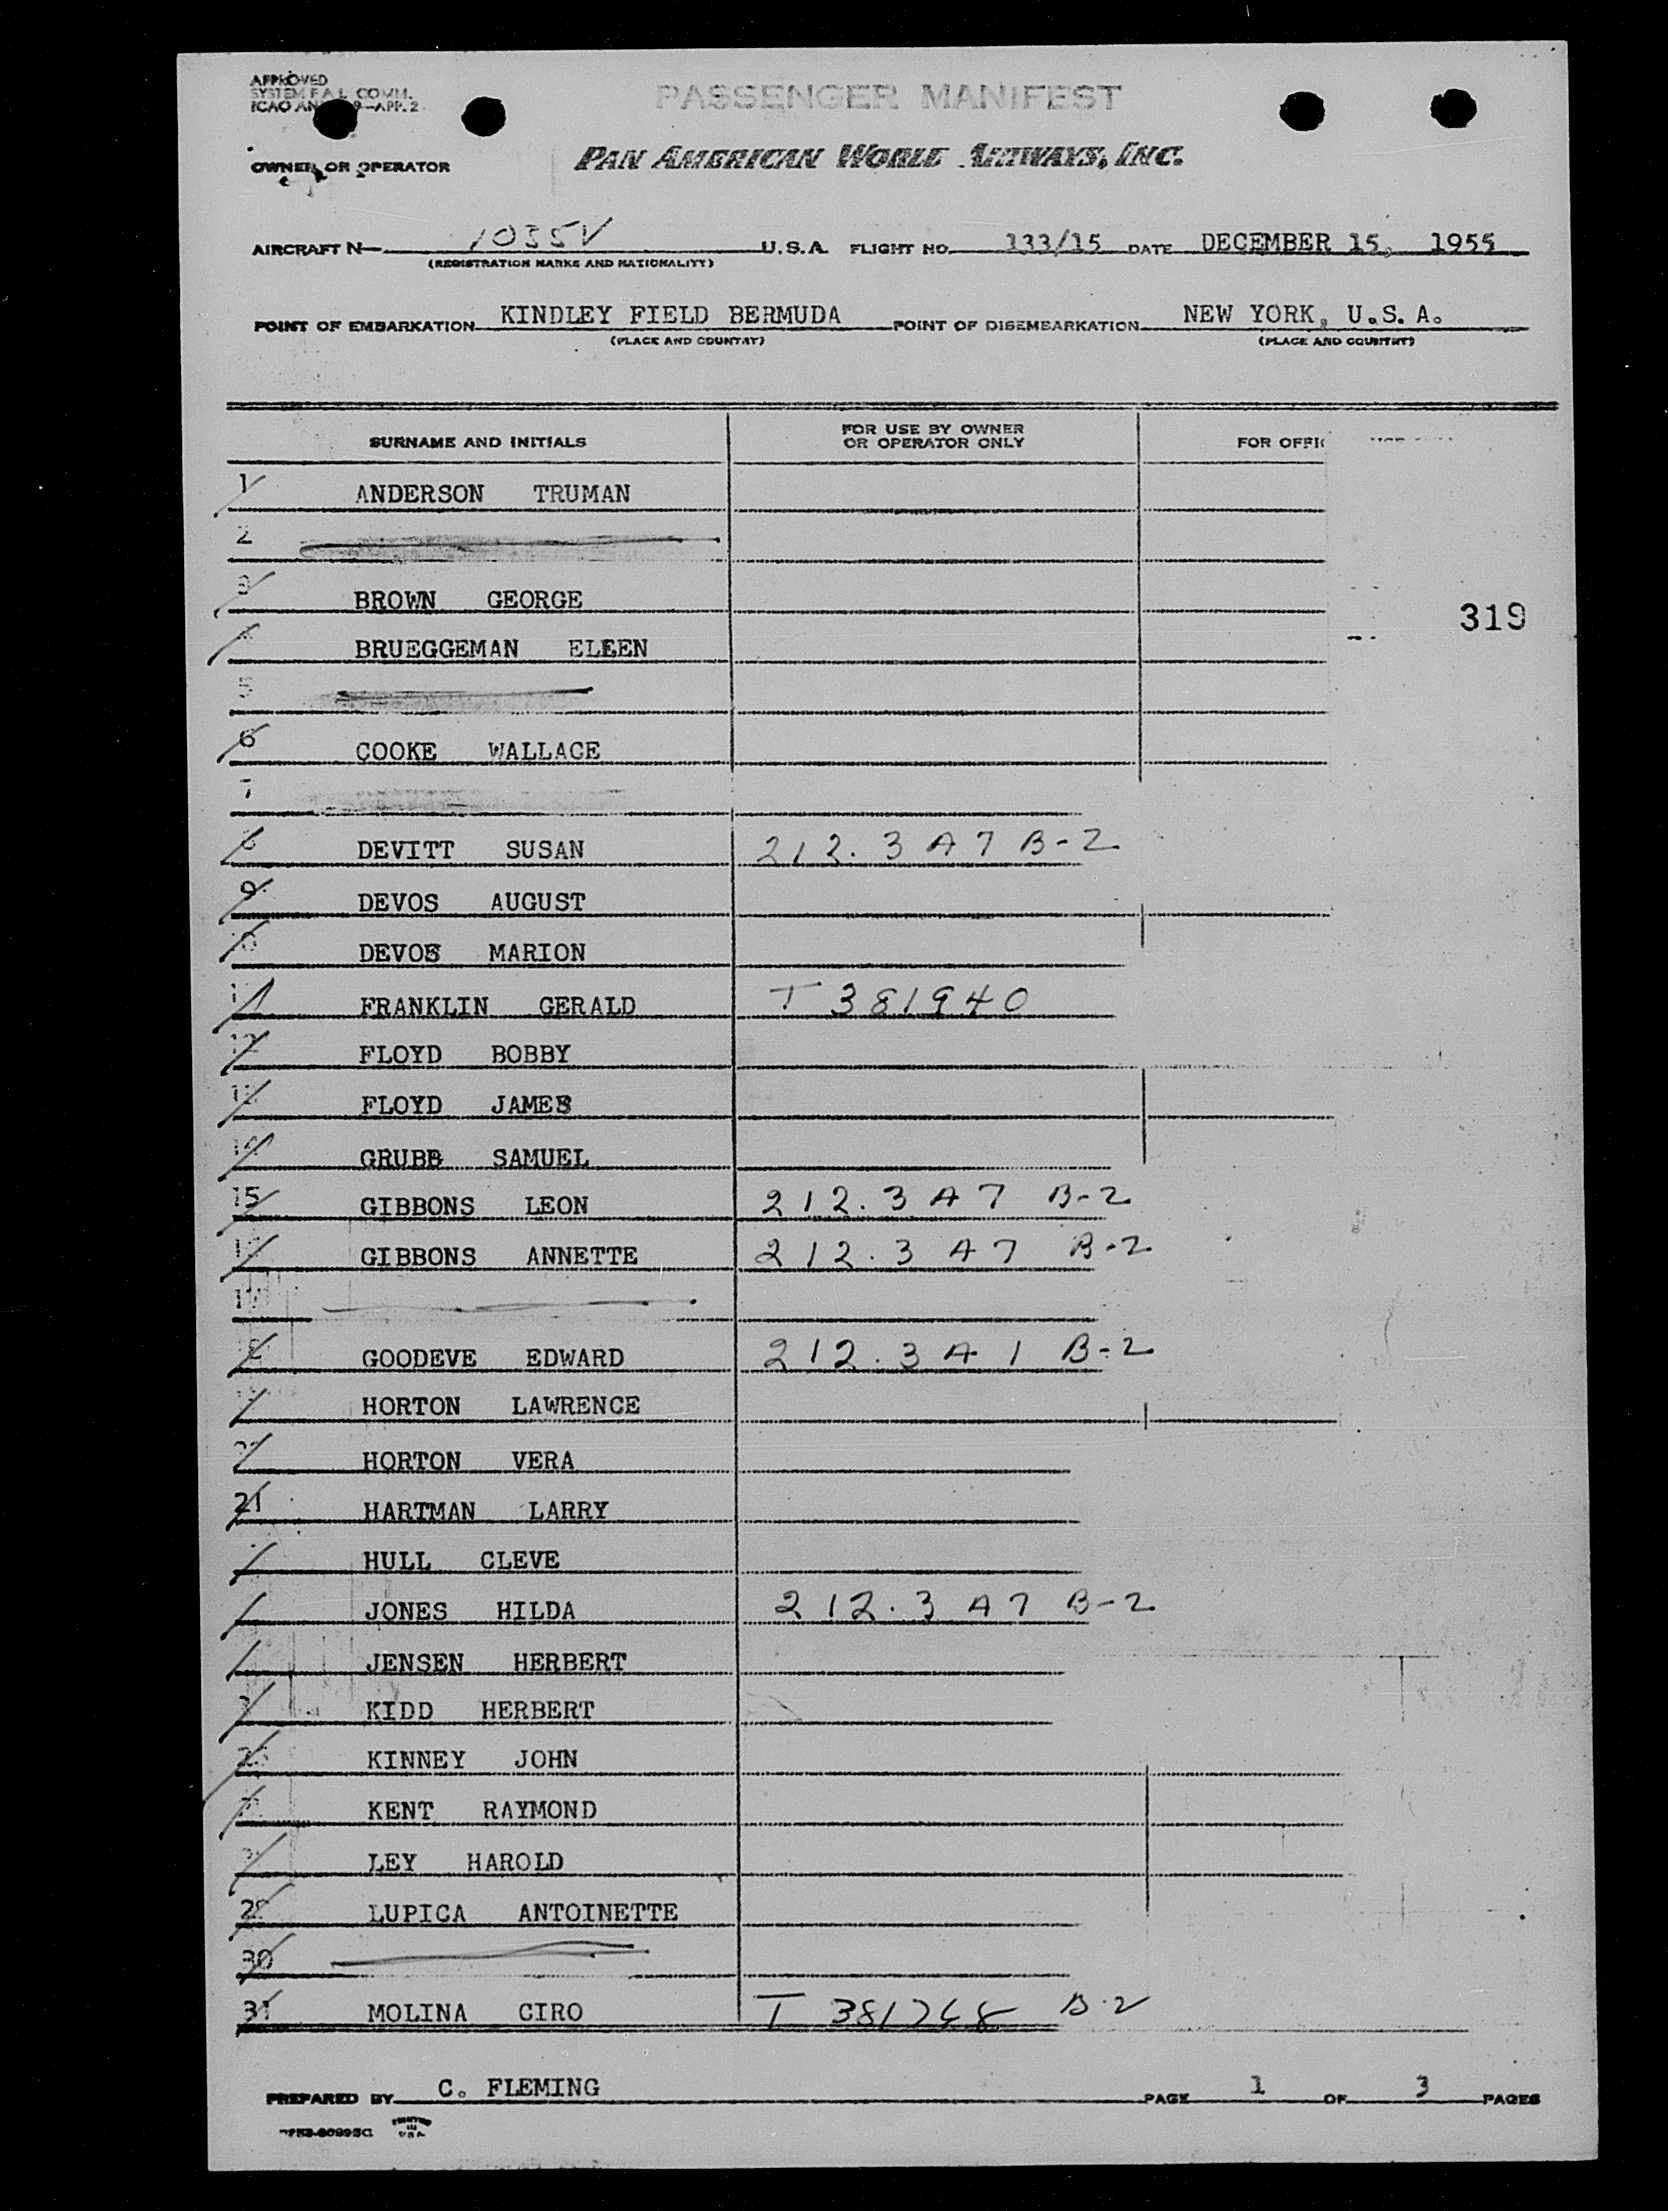 APPROVED
SYSTEM FAL COMM.
ICAO AN 9—APP. 2
PASSENGER MANIFEST
OWNER OR OPERATOR
PAN AMERICAN WORLD AIRWAYS, INC.
AIRCRAFT N 1035V U.S.A. FLIGHT NO. 133/15 DATE DECEMBER 15, 1955
(REGISTRATION MARKS AND NATIONALITY)
POINT OF EMBARKATION KINDLEY FIELD BERMUDA POINT OF DISEMBARKATION NEW YORK, U.S.A.
(PLACE AND COUNTRY) (PLACE AND COUNTRY)
SURNAME AND INITIALS FOR USE BY OWNER OR OPERATOR ONLY FOR OFFIC
1 ANDERSON TRUMAN
2
3 BROWN GEORGE
319
4 BRUEGGEMAN ELEEN
5
6 COOKE WALLACE
7
8 DEVITT SUSAN 212.3 A7 B-2
9 DEVOS AUGUST
10 DEVOS MARION
11 FRANKLIN GERALD T 381940
12 FLOYD BOBBY
13 FLOYD JAMES
14 GRUBB SAMUEL
15 GIBBONS LEON 212.3 A7 B-2
16 GIBBONS ANNETTE 212.3 A7 B-2
17
18 GOODEVE EDWARD 212.3 A1 B-2
HORTON LAWRENCE
HORTON VERA
21 HARTMAN LARRY
HULL CLEVE
JONES HILDA 212.3 A7 B-2
JENSEN HERBERT
KIDD HERBERT
26 KINNEY JOHN
KENT RAYMOND
LEY HAROLD
29 LUPICA ANTOINETTE
30
31 MOLINA CIRO T 381268 B-2
PREPARED BY C. FLEMING PAGE 1 OF 3 PAGES
PRINTED IN USA